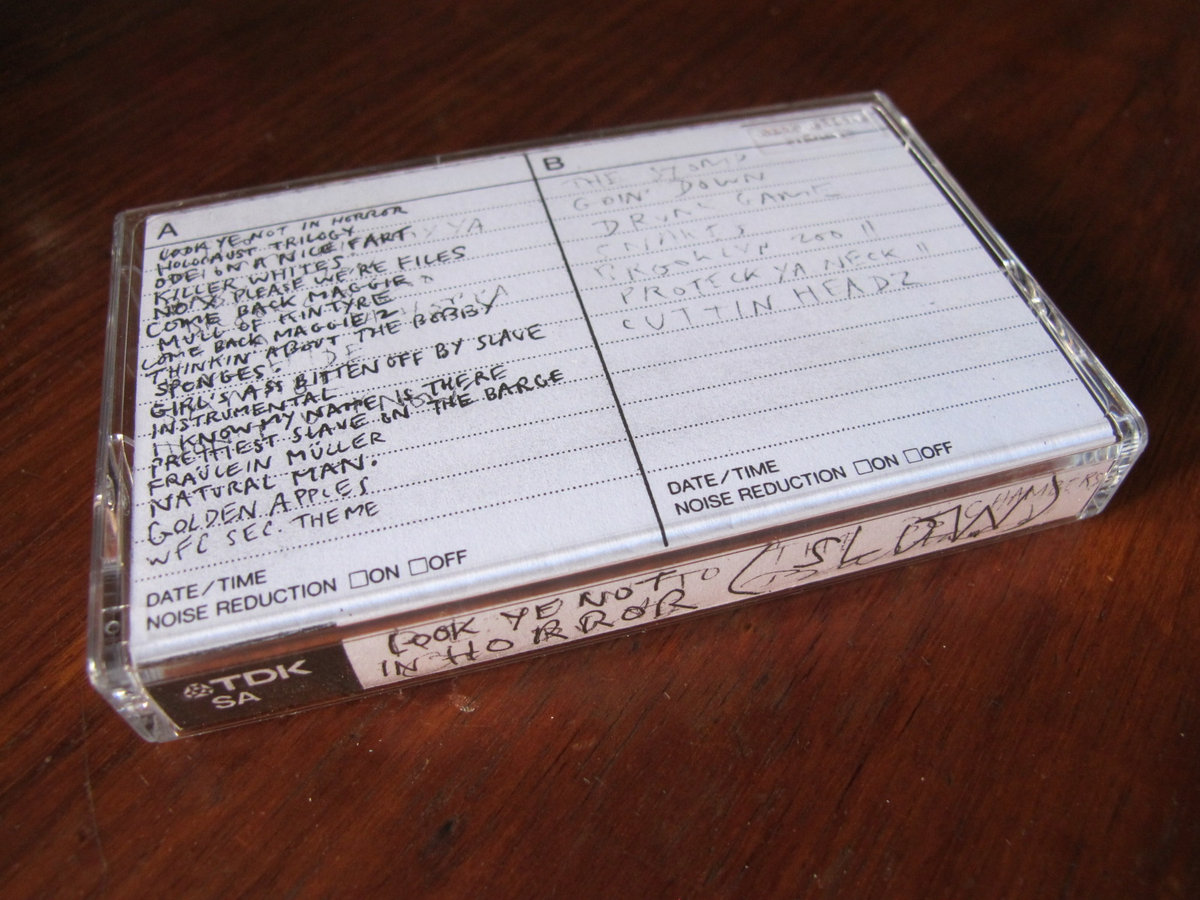 A
LOOK YE NOT IN HORROR
HOLOCAUST TRILOGY
ODE! ON A NICE FART
KILLER WHITES.
NO, PLEASE WE'RE FILES
COME BACK MAGGIE
MULL OF KINTYRE
COME BACK MAGGIE 2
THINKIN' ABOUT THE BOBBY
SPONGES.
GIRL'S ASS BITTEN OFF BY SLAVE
INSTRUMENTAL
I KNOW MY NAME IS THERE
PRETTIEST SLAVE ON THE BARGE
FRAÜLEIN MÜLLER
NATURAL MAN.
GOLDEN APPLES
WFC SEC. THEME
DATE/TIME
NOISE REDUCTION ON OFF
B
THE STOMP
GOIN' DOWN
DRUNK GAME
SNAKES
BROOKLYN ZOO II
PROTECK YA NECK II
CUTTIN HEADZ
DATE/TIME
NOISE REDUCTION ON OFF
TDK
SA
LOOK YE NOT
IN HORROR
CHAMBERS